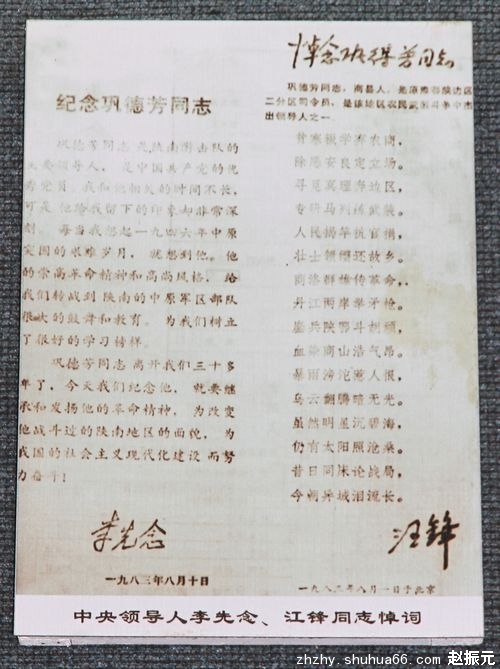 纪念巩德芳同志
巩德芳同志 是陕南游击队的
主要领导人,是中国共产党的优
秀党员。我和他相处的时间不长,
可是 他给我留下的印象却非常深
刻。每当我想起一九四六年中原
突围的艰难岁月,就想到他。他
的崇高革命精神和高尚风格,给
我们转战到陕南的中原军区部队
很大的鼓舞和教育。为我们树立
了很好的学习榜样。
巩德芳同志离开我们三十多
年了,今天我们纪念他,就要继
承和发扬他的革命精神,为改变
他战斗过的陕南地区的面貌,为
我国的社会主义现代化建设而努
力奋斗!
李先念
一九八三年八月十日
悼念巩德芳同志
巩德芳同志,商县人,是原鄂豫陕边区
二分区司令员,是该地区农民武装斗争中杰
出领导人之一。
贫寒辍学务农闲,
除恶安良定立场。
寻觅真理奔边区,
专研马列练武装。
人民拥华抗官绸,
壮士领命还故乡。
商洛群雄传革命,
丹江两岸举矛枪。
鏖兵陕鄂斗胡顽,
血染商山浩气昂。
暴雨滂沱惹人恨,
乌云翻腾暗无光。
虽然明星沉碧海,
仍有太阳照沧桑。
昔日同床论战局,
今朝异城泪流长。
汪锋
一九八三年八月一日于北京
中央领导人李先念、江锋同志悼词
zhzhy.shuhua66.com 赵振元